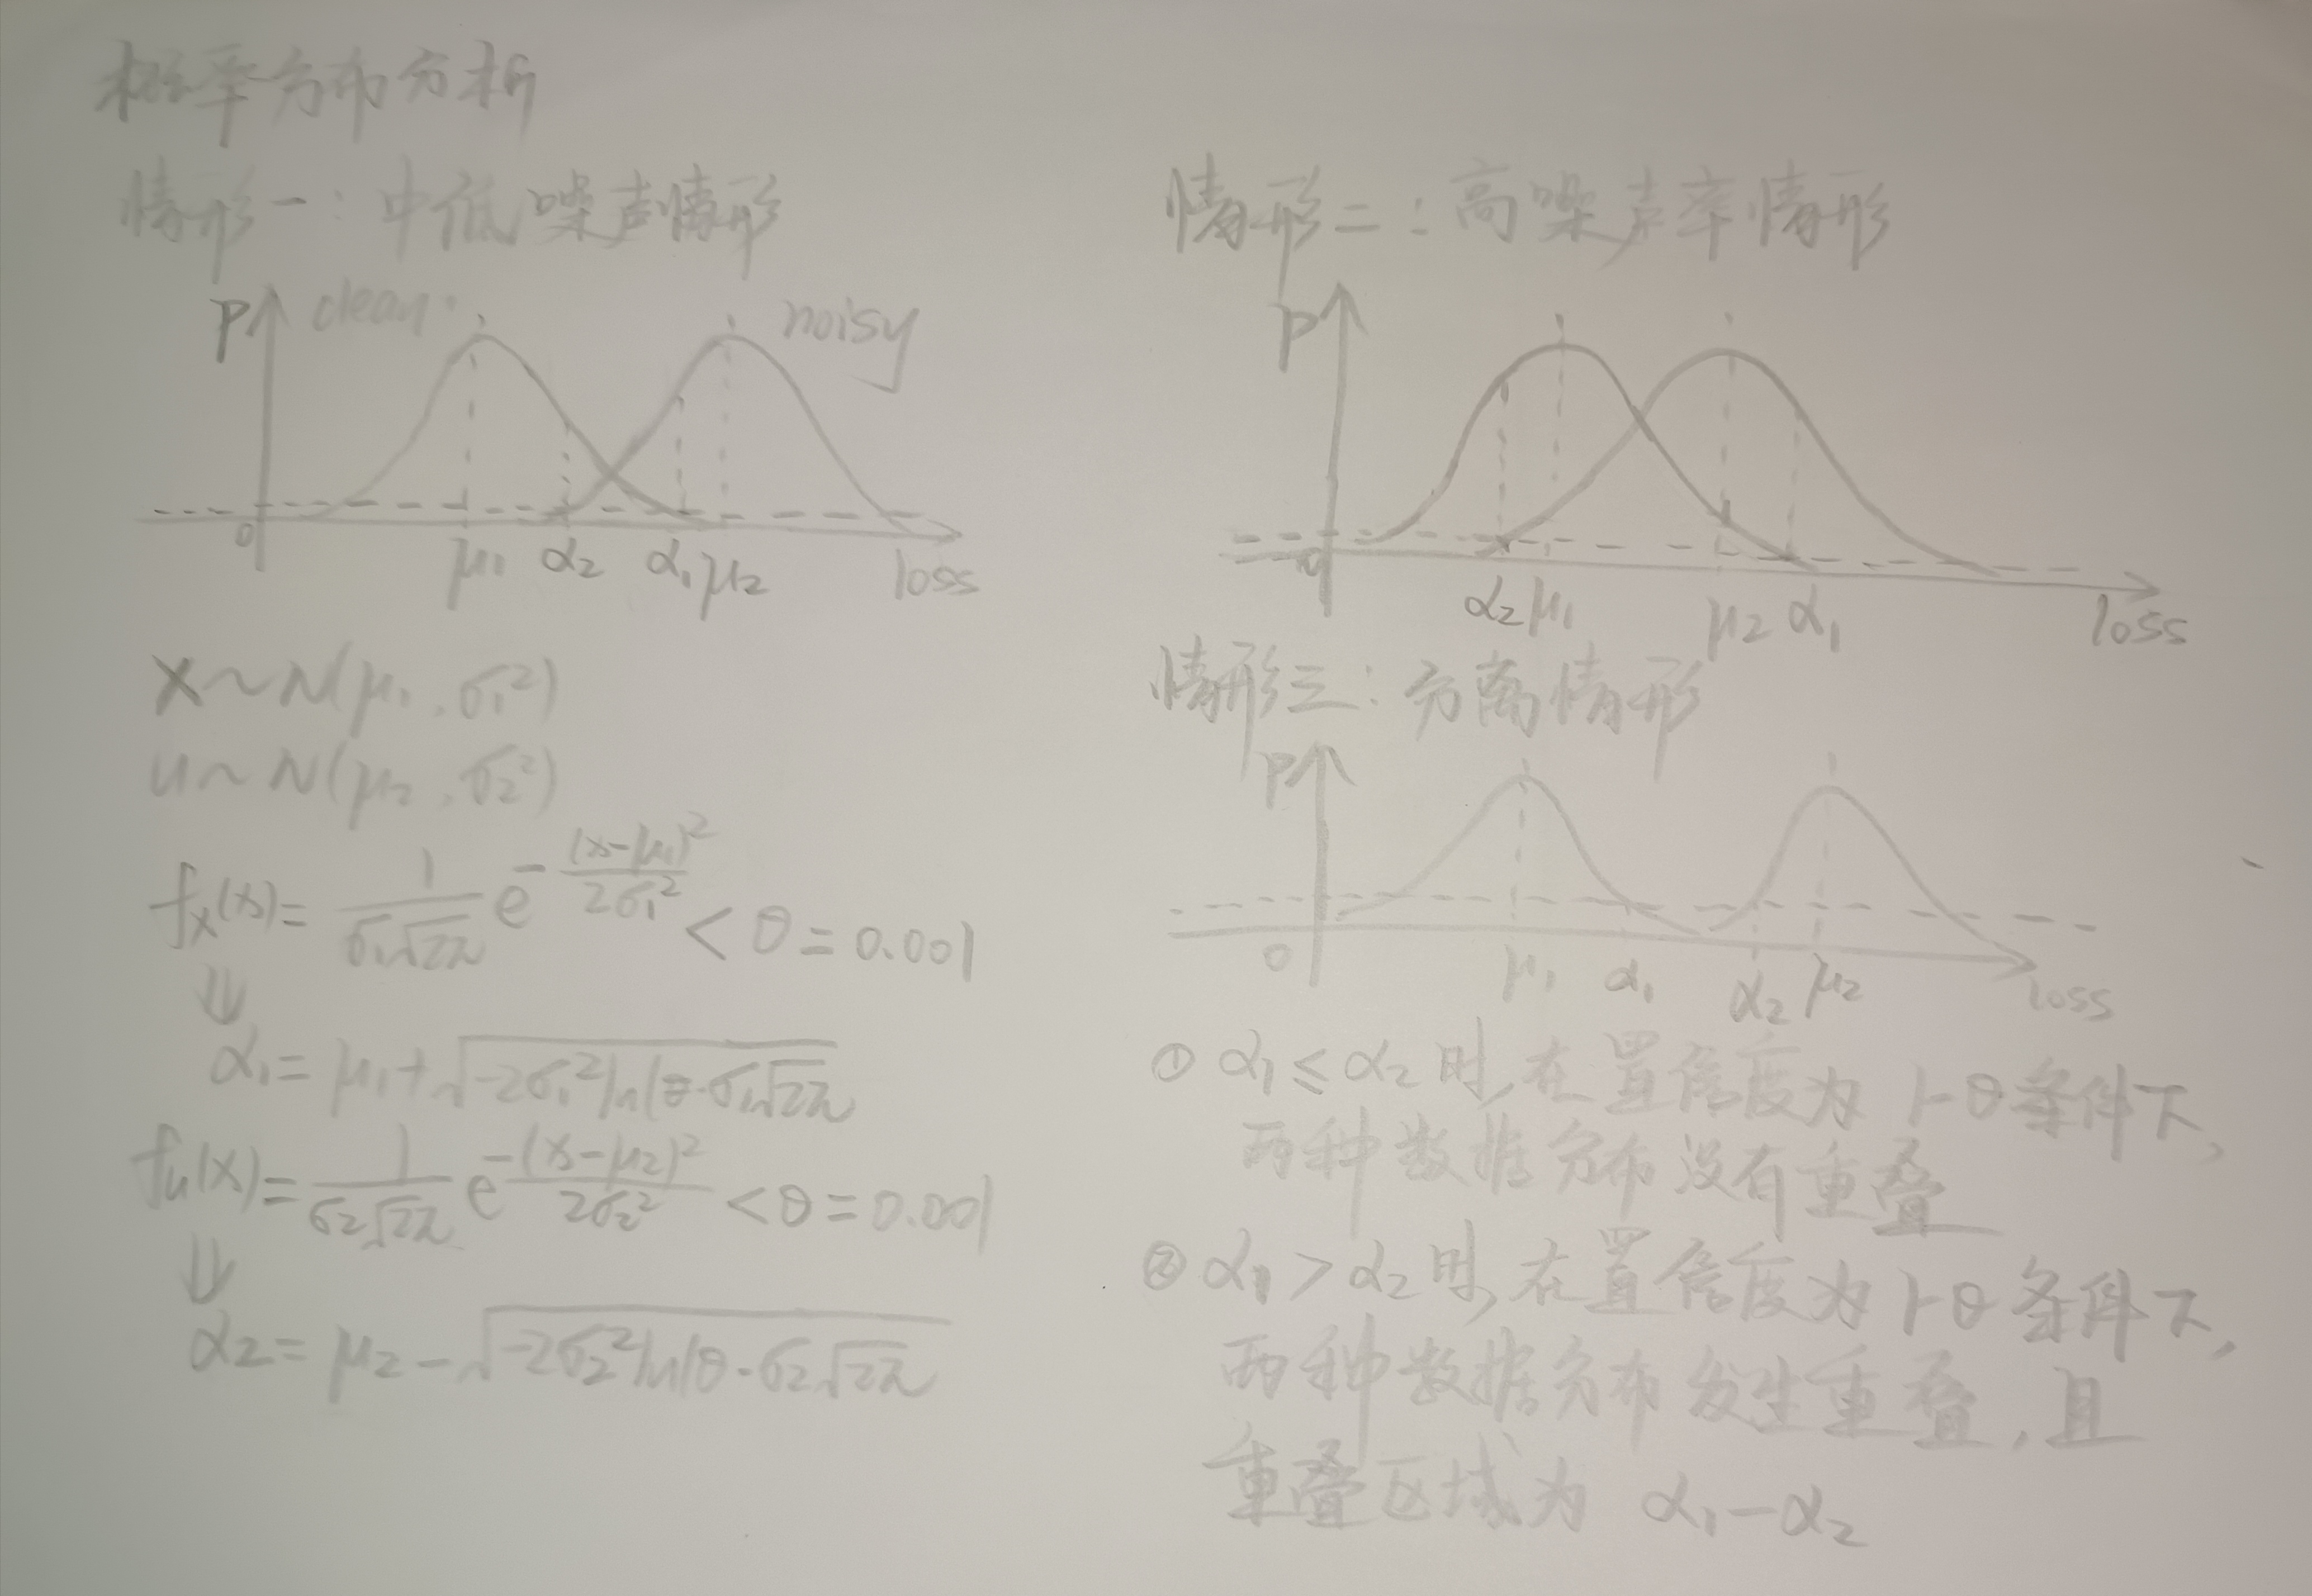 概率分布分析
情形一：中低噪声情形
P clean noisy
0 μ₁ α₂ α₁ μ₂ loss
X~N(μ₁,σ₁²)
u~N(μ₂,σ₂²)
fₓ(x)=1/(σ₁√2π) e^-(x-μ₁)²/2σ₁² < θ=0.001
⇓
α₁=μ₁+√-2σ₁²ln(θ·σ₁√2π
fᵤ(x)=1/(σ₂√2π) e^-(x-μ₂)²/2σ₂² <θ=0.001
⇓
α₂=μ₂-√-2σ₂²ln(θ·σ₂√2π
情形二：高噪声率情形
P
0 α₂ μ₁ μ₂ α₁ loss
情形三：分离情形
P
0 μ₁ α₁ α₂ μ₂ loss
① α₁≤α₂时,在置信度为1-θ条件下,
两种数据分布没有重叠
② α₁>α₂时,在置信度为1-θ条件下,
两种数据分布发生重叠,且
重叠区域为 α₁-α₂